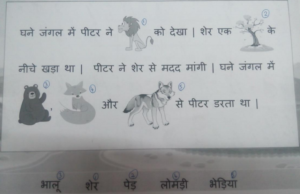 घने जंगल में पीटर ने को देखा | शेर एक के
नीचे खड़ा था | पीटर ने शेर से मदद मांगी | घने जंगल में
और से पीटर डरता था |
भालू शेर पेड़ लोमड़ी भेड़िया